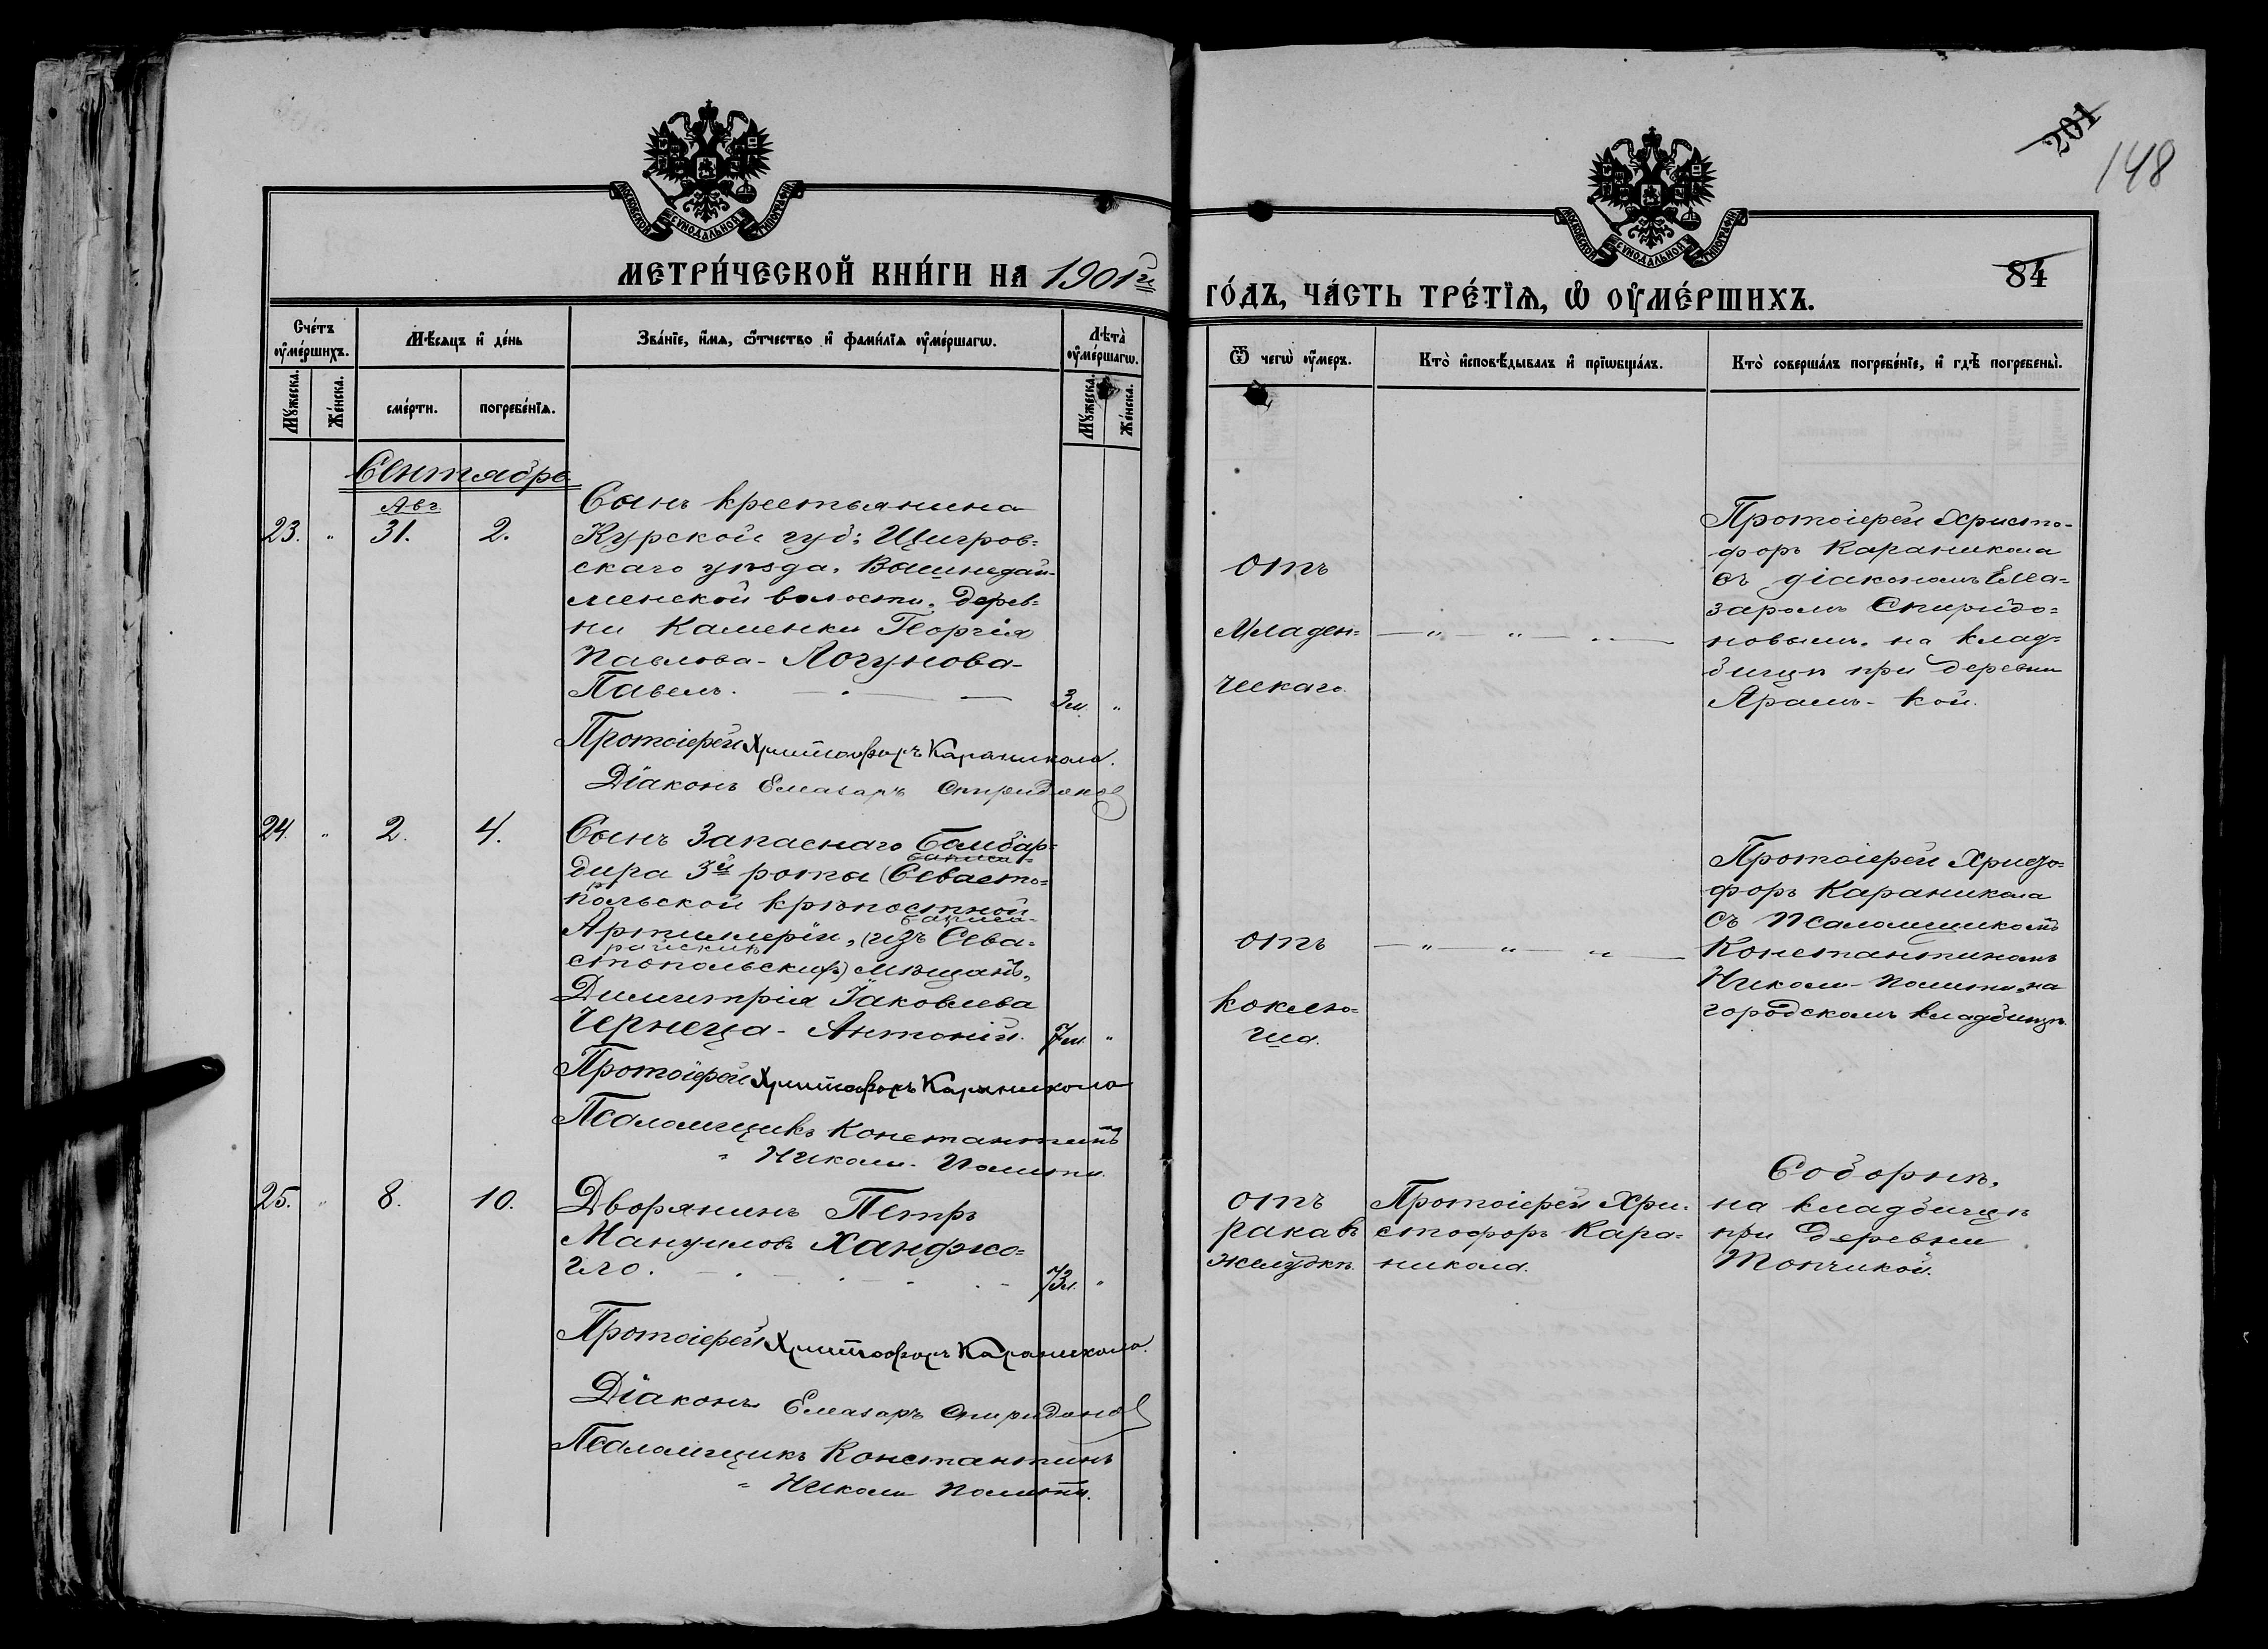 201
148
МОСКОВСКОЙ СУНОДАЛЬНОЙ ТИПОГРАФІИ
МОСКОВСКОЙ СУНОДАЛЬНОЙ ТИПОГРАФІИ
МЕТРИ́ЧЕСКОЙ КНИ́ГИ НА 1901й
ГО́ДЪ, ЧА́СТЬ ТРЕ́ТІѦ, Ѡ҆ ОУ҆МЕ́РШИХЪ.
84
Сче́тъ оу҆ме́ршихъ.
Мѣ́сѧцъ и҆ де́нь
Зва́нїе, и҆́мѧ, ѻ҆́тчество и҆ фами́лїѧ оу҆ме́ршагѡ.
Лѣ́та оу҆ме́ршагѡ.
Мꙋ́жеска.
Же́нска.
сме́рти.
погребе́нїѧ.
Мꙋ́жеска.
Же́нска.
Ѿ чегѡ̀ оу҆́меръ.
Кто̀ и҆сповѣ́дывалъ и҆ прїѡбща́лъ.
Кто̀ соверша́лъ погребе́нїе, и҆ гдѣ̀ погребены̀.
Сентябрь
Авг.
23. " 31. 2.
Сынъ крестьянина
Курской губ: Щигров=
скаго уѣзда,
менской волости, дерев=
ни Каменки Георгія
Павлова- Логунова-
Павелъ. 3м. "
Протоіерей Христофоръ Караникола.
Діаконъ Елиазаръ Спиридоновъ
отъ
Младен=
ческаго.
— " — " — " —
Протоіерей Христо-
форъ Караникола
съ діакономъ Елеа=
заромъ Спиридо=
новымъ, на клад=
бищѣ при деревни
Арамъ- кой.
24. " 2. 4.
Сынъ Запаснаго Бомбар=
дира 3й роты (Севасто=
польской крѣпостной
Артиллеріи, (изъ Сева=
стопольскихъ) мѣщанъ,
Димитрія Іаковлева
Чернеца- Антоній. 7м. "
Протоіерей Христофоръ Караникола
Псаломщикъ Константинъ
" Николи- Полити.
отъ
коклю=
ша.
— " — " — " —
Протоіерей Христо=
форъ Караникола
съ Псаломщикомъ
Константиномъ
Николи- Полити, на
городскомъ кладбищѣ.
25. " 8. 10.
Дворянинъ Петръ
Мануиловъ Ханджо=
гло. 73л. "
Протоіерей Христофоръ Караникола.
Діаконъ Елиазаръ Спиридоновъ
Псаломщикъ Константинъ
" Николи Полити.
отъ
рака въ
желудкѣ.
Протоіерей Хри-
стофоръ Кара-
никола.
Соборнѣ,
на кладбищѣ
при деревни
Топчикой.